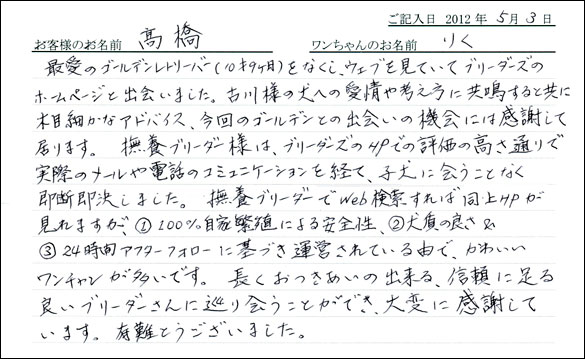 ご記入日 2012年 5月 3日
お客様のお名前 高橋 ワンちゃんのお名前 りく
最愛のゴールデンレトリーバー(10才9ヶ月)をなくし、ウェブを見ていてブリーダーズの
ホームページと出会いました。古川様の犬への愛情や考え方に共鳴すると共に
木目細かなアドバイス、今回のゴールデンとの出会いの機会には感謝して
居ります。 撫養ブリーダー様は、ブリーダーズのHPでの評価の高さ通りで
実際のメールや電話のコミュニケーションを経て、子犬に会うことなく
即断即決しました。 撫養ブリーダーでWeb検索すれば同上HPが
見れますが、①100%自家繁殖による安全性、②犬質の良さ&
③24時間アフターフォローに基づき運営されている由で、かわいい
ワンチャンが多いです。 長くおつきあいの出来る、信頼に足る
良いブリーダーさんに巡り会うことができ、大変に感謝して
います。有難とうございました。